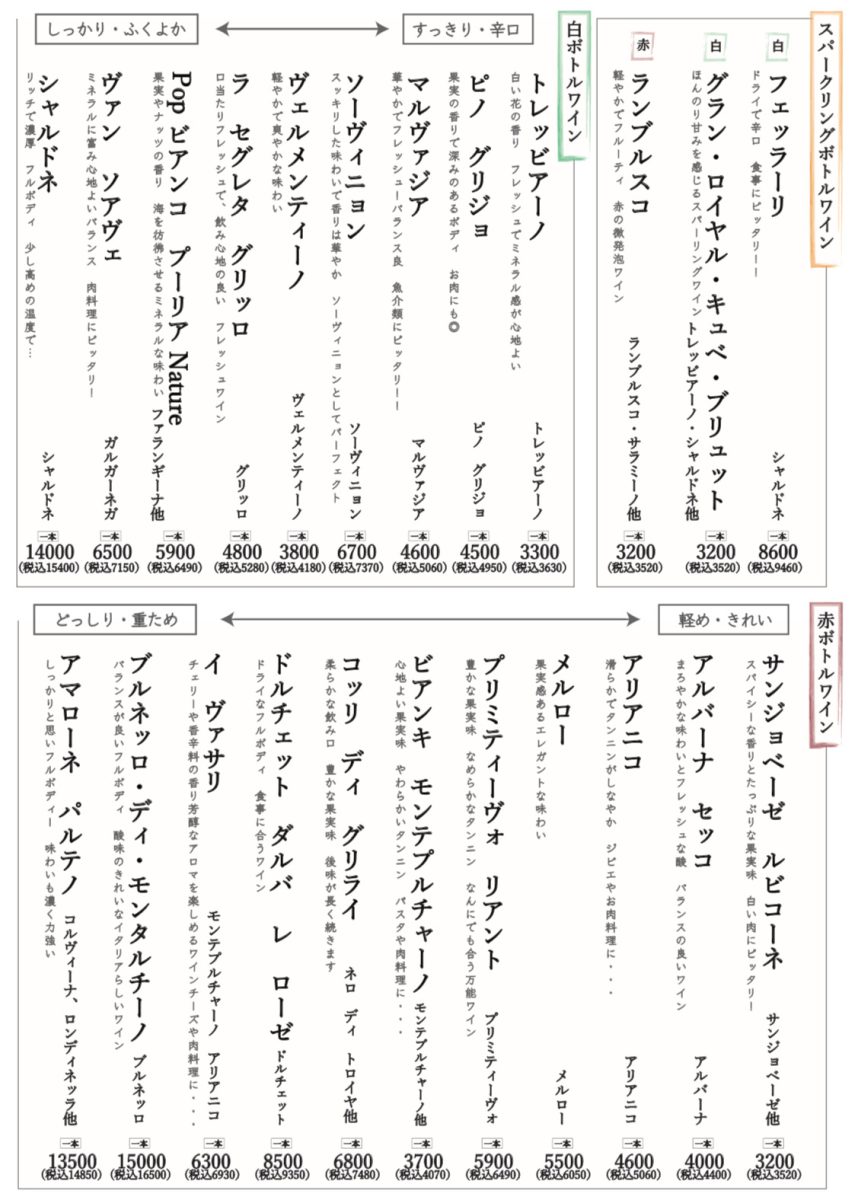 スパークリングボトルワイン
白
フェッラーリ
ドライで辛口　食事にピッタリー！
シャルドネ
一本
8600
(税込9460)
白
グラン・ロイヤル・キュベ・ブリュット
ほんのり甘みを感じるスパーリングワイン
トレッビアーノ・シャルドネ他
一本
3200
(税込3520)
赤
ランブルスコ
軽やかでフルーティ　赤の微発泡ワイン
ランブルスコ・サラミーノ他
一本
3200
(税込3520)
白ボトルワイン
すっきり・辛口
しっかり・ふくよか
トレッビアーノ
白い花の香り　フレッシュでミネラル感が心地よい
トレッビアーノ
一本
3300
(税込3630)
ピノ　グリジョ
果実の香りで深みのあるボディ　お肉にも◎
ピノ　グリジョ
一本
4500
(税込4950)
マルヴァジア
華やかでフレッシューバランス良　魚介類にピッタリー！
マルヴァジア
一本
4600
(税込5060)
ソーヴィニョン
スッキリした味わいで香りは華やか　ソーヴィニョンとしてパーフェクト
ソーヴィニョン
一本
6700
(税込7370)
ヴェルメンティーノ
軽やかで爽やかな味わい
ヴェルメンティーノ
一本
3800
(税込4180)
ラ　セグレタ　グリッロ
口当たりフレッシュで、飲み心地の良い　フレッシュワイン
グリッロ
一本
4800
(税込5280)
Pop ビアンコ　プーリア Nature
果実やナッツの香り　海を彷彿させるミネラルな味わい
ファランギーナ他
一本
5900
(税込6490)
ヴァン　ソアヴェ
ミネラルに富み心地よいバランス　肉料理にピッタリー！
ガルガーネガ
一本
6500
(税込7150)
シャルドネ
リッチで濃厚　フルボディ　少し高めの温度で…
シャルドネ
一本
14000
(税込15400)
赤ボトルワイン
軽め・きれい
どっしり・重ため
サンジョベーゼ　ルビコーネ
スパイシーな香りとたっぷりな果実味　白い肉にピッタリー！
サンジョベーゼ他
一本
3200
(税込3520)
アルバーナ　セッコ
まろやかな味わいとフレッシュな酸　バランスの良いワイン
アルバーナ
一本
4000
(税込4400)
アリアニコ
滑らかでタンニンがしなやか　ジビエやお肉料理に・・・
アリアニコ
一本
4600
(税込5060)
メルロー
果実感あるエレガントな味わい
メルロー
一本
5500
(税込6050)
プリミティーヴォ　リアント
豊かな果実味　なめらかなタンニン　なんにでも合う万能ワイン
プリミティーヴォ
一本
5900
(税込6490)
ビアンキ　モンテプルチャーノ
心地よい果実味　やわらかいタンニン　パスタや肉料理に・・・
モンテプルチャーノ他
一本
3700
(税込4070)
コッリ　ディ　グリライ
柔らかな飲み口　豊かな果実味　後味が長く続きます
ネロ　ディ　トロイヤ他
一本
6800
(税込7480)
ドルチェット　ダルバ　レ　ローゼ
ドライなフルボディ　食事に合うワイン
ドルチェット
一本
8500
(税込9350)
イ　ヴァサリ
チェリーや香辛料の香り芳醇なアロマを楽しめるワインチーズや肉料理に・・・・
モンテプルチャーノ　アリアニコ
一本
6300
(税込6930)
ブルネッロ・ディ・モンタルチーノ
バランスが良いフルボディ　酸味のきれいなイタリアらしいワイン
ブルネッロ
一本
15000
(税込16500)
アマローネ　パルテノ
しっかりと思いフルボディー　味わいも濃く力強い
コルヴィーナ、ロンディネッラ他
一本
13500
(税込14850)